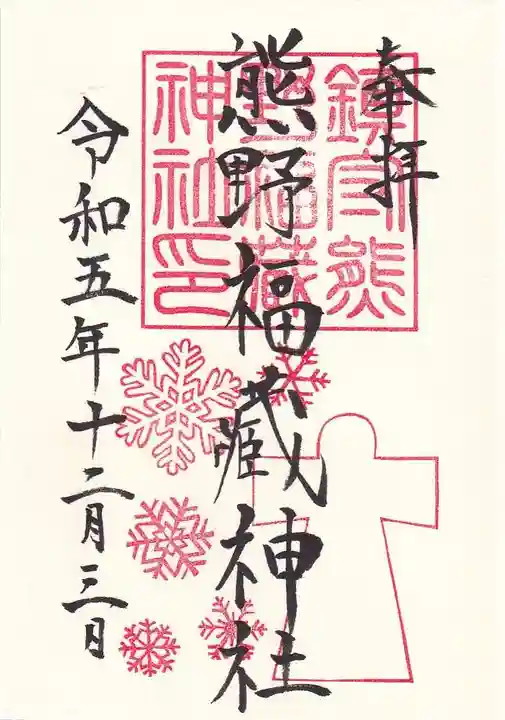 奉拝
熊野福藏神社
令和五年十二月三日
鎮守熊
野福藏
神社印